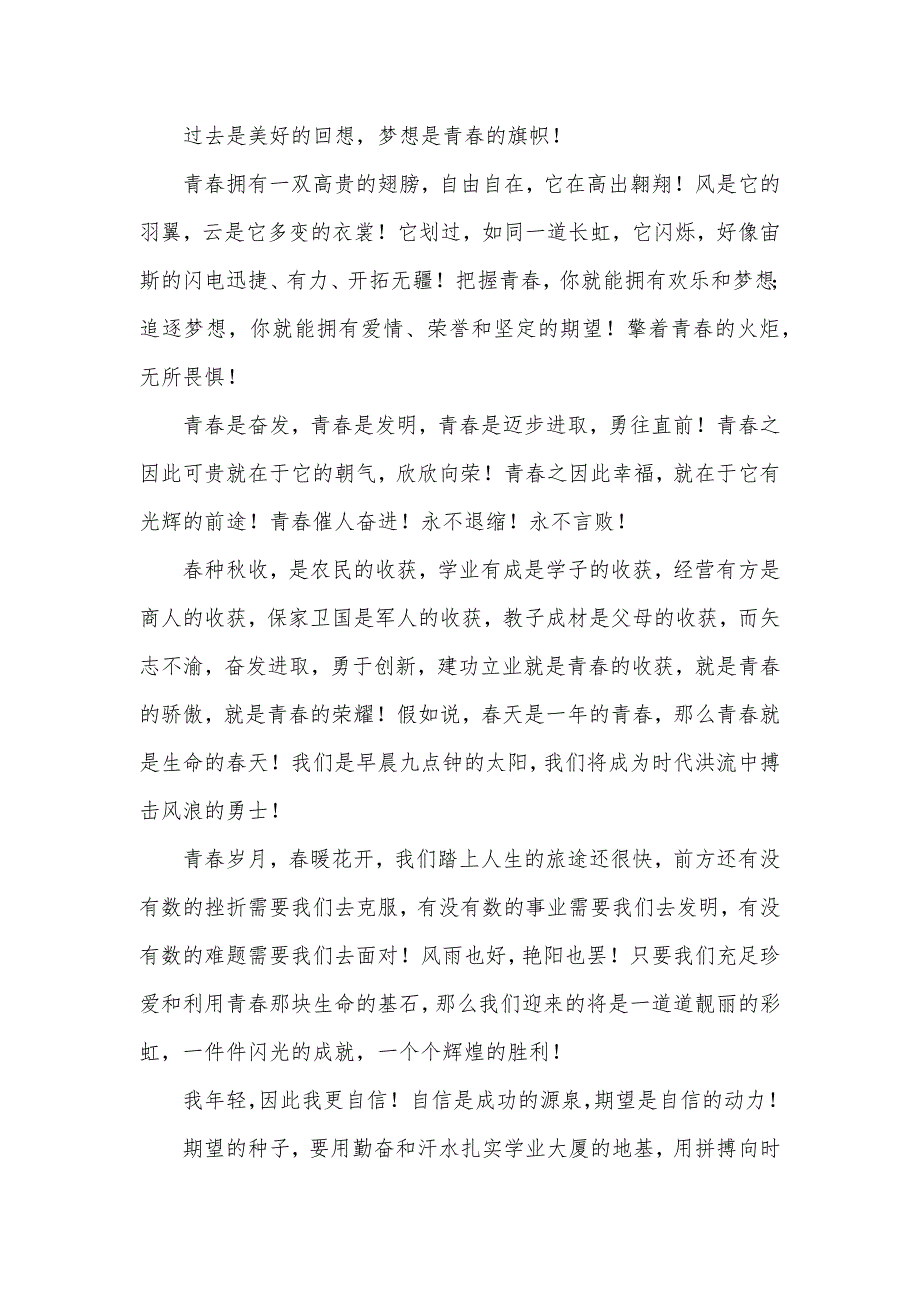 过去是美好的回想，梦想是青春的旗帜！
青春拥有一双高贵的翅膀，自由自在，它在高出翱翔！风是它的
羽翼，云是它多变的衣裳！它划过，如同一道长虹，它闪烁，好像宙
斯的闪电迅捷、有力、开拓无疆！把握青春，你就能拥有欢乐和梦想；
追逐梦想，你就能拥有爱情、荣誉和坚定的期望！擎着青春的火炬，
无所畏惧！
青春是奋发，青春是发明，青春是迈步进取，勇往直前！青春之
因此可贵就在于它的朝气，欣欣向荣！青春之因此幸福，就在于它有
光辉的前途！青春催人奋进！永不退缩！永不言败！
春种秋收，是农民的收获，学业有成是学子的收获，经营有方是
商人的收获，保家卫国是军人的收获，教子成材是父母的收获，而矢
志不渝，奋发进取，勇于创新，建功立业就是青春的收获，就是青春
的骄傲，就是青春的荣耀！假如说，春天是一年的青春，那么青春就
是生命的春天！我们是早晨九点钟的太阳，我们将成为时代洪流中搏
击风浪的勇士！
青春岁月，春暖花开，我们踏上人生的旅途还很快，前方还有没
有数的挫折需要我们去克服，有没有数的事业需要我们去发明，有没
有数的难题需要我们去面对！风雨也好，艳阳也罢！只要我们充足珍
爱和利用青春那块生命的基石，那么我们迎来的将是一道道靓丽的彩
虹，一件件闪光的成就，一个个辉煌的胜利！
我年轻，因此我更自信！自信是成功的源泉，期望是自信的动力！
期望的种子，要用勤奋和汗水扎实学业大厦的地基，用拼搏向时